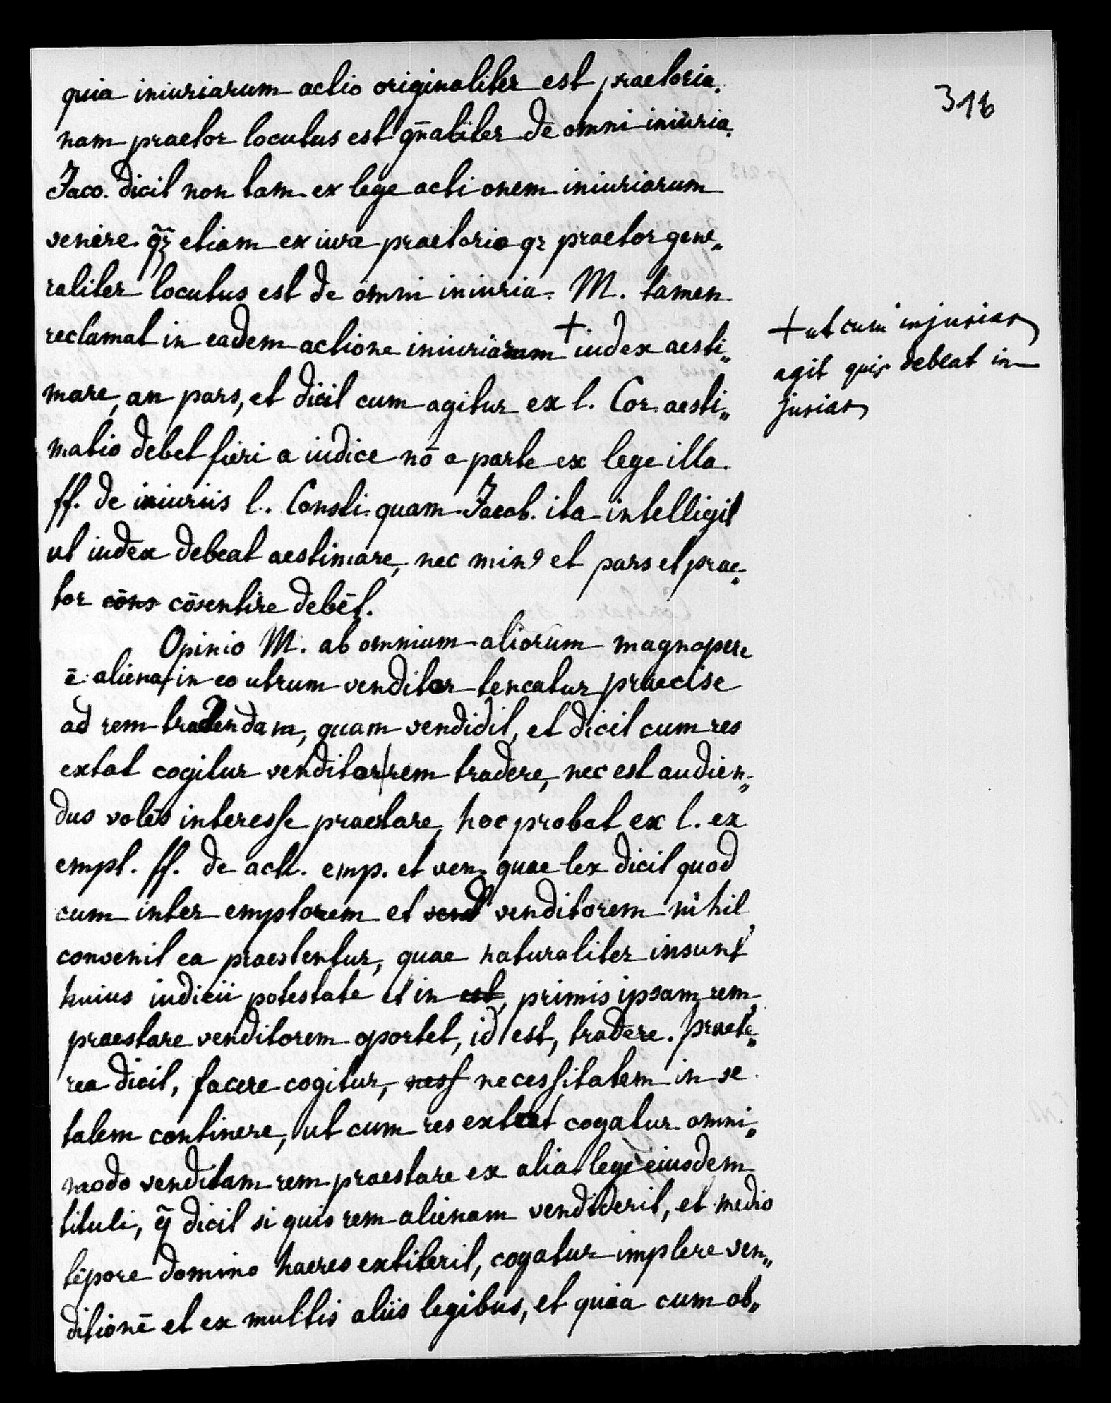 316
quia iniuriarum actio originaliter est praetoria.
nam praetor locutus est gn̄aliter de omni iniuria.
Jaco. dicit non tam ex lege actionem iniuriarum
venire q̄ etiam ex iure praetorio qz praetor gene„
raliter locutus est de omni iniuria. M. tamen
reclamat in eadem actione iniuriarum + iudex aesti„
+ ut cum injurias
agit quis debeat in
jurias
mare, an pars, et dicit cum agitur ex l. Cor. aesti„
matio debet fieri a iudice nō a parte ex lege illa.
ff. de iniuriis l. Consti. quam Jacob. ita intelligit
ut iudex debeat aestimare, nec min9 et pars et prae„
tor cōns cōsentire debēt.
Opinio M. ab omnium aliorum magnopere
ē aliena, in eo utrum venditor teneatur praecise
ad rem tradendam, quam vendidit, et dicit cum res
extat cogitur venditor rem tradere, nec est audien„
dus volēs interesse praestare, hoc probat ex l. ex
empt. ff. de act. emp. et ven. quae lex dicit quod
cum inter emptorem et vend venditorem nihil
convenit ea praestentur, quae naturaliter insunt
huius iudicii potestate et in est, primis ipsam rem
praestare venditorem oportet, id est, tradere. praete„
rea dicit, facere cogitur, ness necessitatem in se
talem continere, ut cum res extat cogatur omni„
modo venditam rem praestare ex alia lege eiusdem
tituli, q̄ dicit si quis rem alienam vendiderit, et medio
tēpore domino haeres extiterit, cogatur implere ven„
ditionē et ex multis aliis legibus, et quia cum ob„